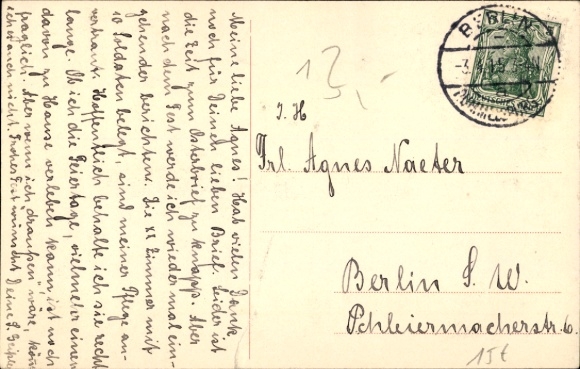 Meine liebe Agnes! Hab vielen Dank
noch für Deinen lieben Brief. Leider ist
die Zeit zum Osterbrief zu knapp. Aber
nach dem Fest werde ich wieder mal ein-
gehender berichten. Die XI Zimmer mit
10 Soldaten belegt, sind meiner Pflege an-
vertraut. Hoffentlich behalte ich sie recht
lange. Ob ich die Feiertage, vielmehr einen
davon zu Hause verleben kann ist noch
fraglich. Aber wenn ich "draußen" wäre, könnte
ich es auch nicht. Frohes Fest wünscht Deine L.
13,-
BERLIN
-3. 15
I. H
Frl. Agnes Naeter
Berlin S. W.
Schleiermacherstr. 6.